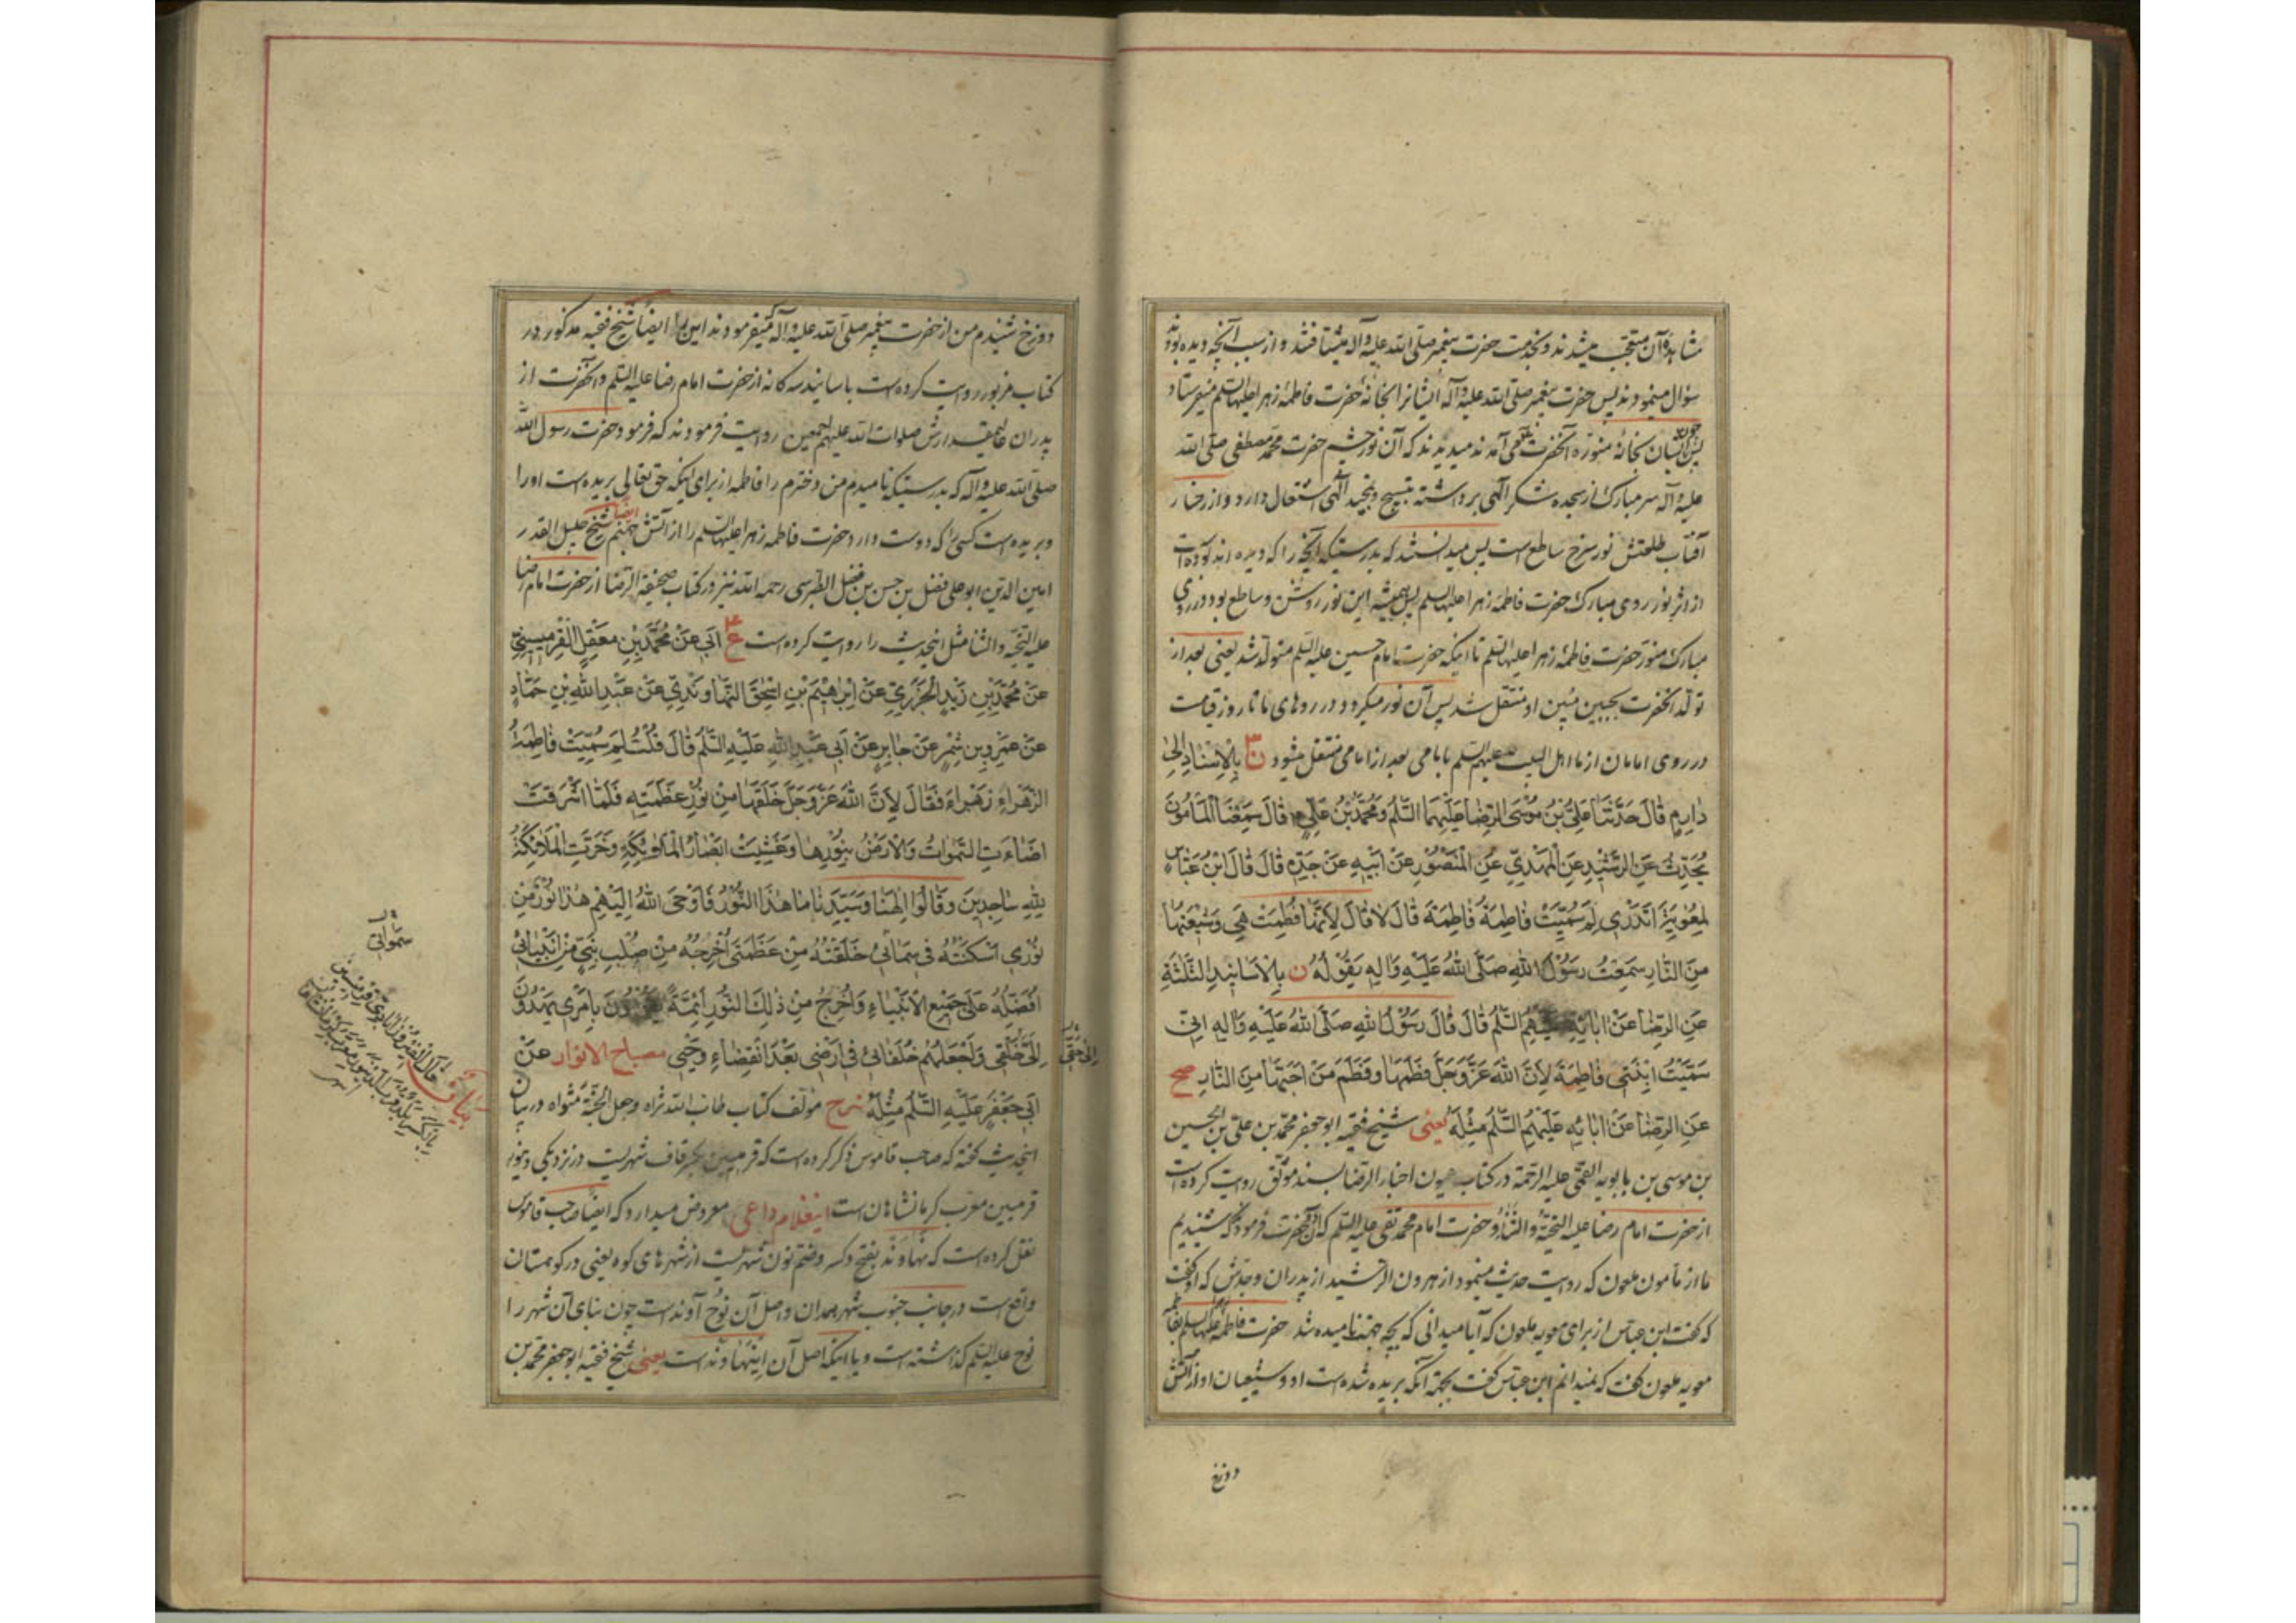 مشاهدهٔ آن متعجب میشدند و بخدمت حضرت پیغمبر صلی الله علیه وآله میشتافتند و از سبب آنچه دیده بودند
سؤال مینمودند پس حضرت پیغمبر صلی الله علیه وآله ایشانرا بخانهٔ حضرت فاطمهٔ زهرا علیها السلم میفرستاد
پس چون ایشان بخانهٔ منورهٔ آنحضرت می آمدند میدیدند که آن نور چشم حضرت محمد مصطفی صلی الله
علیه وآله سر مبارک از سجده شکر الهی برداشته بتسبیح و تمجید الهی اشتغال دارد و از رخسار
آفتاب طلعتش نور سرخ ساطع است پس میدانستند که بدرستیکه آنچه را که دیده اند بوده است
از اثر نور روی مبارک حضرت فاطمه زهرا علیها السلم پس همیشه این نور روشن و ساطع بود در روی
مبارک منور حضرت فاطمهٔ زهرا علیها السلم تا اینکه حضرت امام حسین علیه السلم متولد شد یعنی بعد از
تولد آنحضرت بجبین مبین او منتقل شد پس آن نور میگردد در روهای ما تا روز قیامت
در روی امامان از ما اهل البیت علیهم السلم بامامی بعد از امامی منتقل میشود ن بِالْاِسْنَادِ اِلیٰ
دٰارِمٍ قٰالَ حَدَّثَنَا عَلِیُّ بْنُ مُوسَی الرِّضَا عَلَیْهِمَا السَّلٰمُ وَمُحَمَّدُ بْنُ عَلِیٍّ قٰالَ سَمِعْنَا الْمَأْمُونَ
یُحَدِّثُ عَنِ الرَّشِیْدِ عَنِ الْمَهْدِیِّ عَنِ الْمَنْصُوْرِ عَنْ اَبِیْهِ عَنْ جَدِّهِ قٰالَ قٰالَ ابْنُ عَبّٰاسٍ
لِمُعٰوِیَةَ اَتَدْرِی لِمَ سُمِّیَتْ فٰاطِمَةُ فٰاطِمَةَ قٰالَ لٰا قٰالَ لِاَنَّهٰا فُطِمَتْ هِیَ وَشِیْعَتُهٰا
مِنَ النّٰارِ سَمِعْتُ رَسُوْلَ اللهِ صَلَّی اللهُ عَلَیْهِ وَاٰلِهِ یَقُوْلُهُ ن بِالْاَسٰانِیْدِ الثَّلٰثَةِ
عَنِ الرِّضٰا عَنْ اٰبٰائِهِ عَلَیْهِمُ السَّلٰمُ قٰالَ قٰالَ رَسُوْلُ اللهِ صَلَّی اللهُ عَلَیْهِ وَاٰلِهِ اِنّی
سَمَّیْتُ ابْنَتِی فٰاطِمَةَ لِاَنَّ اللهَ عَزَّ وَجَلَّ فَطَمَهٰا وَفَطَمَ مَنْ اَحَبَّهٰا مِنَ النّٰارِ صح
عَنِ الرِّضٰا عَنْ اٰبٰائِهِ عَلَیْهِمُ السَّلٰمُ مِثْلَهُ یعنی شیخ فقیه ابو جعفر محمد بن علی بن الحسین
بن موسی بن بابویه القمی علیه الرحمة در کتاب عیون اخبار الرضا بسند موثق روایت کرده است
از حضرت امام رضا علیه التحیّة والثناء و حضرت امام محمد تقی علیه السلم که آنحضرت فرمودند که شنیدیم
ما از مأمون ملعون که روایت حدیث مینمود از هرون الرشید از پدران و جدش که او گفت
که گفت ابن عباس از برای معویه ملعون که آیا میدانی که بچه جهت نامیده شد حضرت فاطمه علیها السلم بفاطمه
معویه ملعون گفت که نمیدانم ابن عباس گفت بجهة آنکه بریده شده است او و شیعیان او از آتش
دوزخ
دوزخ شنیدم من از حضرت پیغمبر صلی الله علیه وآله که میفرمودند این را ایضا شیخ فقیه مذکور در
کتاب مزبور روایت کرده است باسانید سه کانه از حضرت امام رضا علیه السلم و آنحضرت از
پدران عالیمقدارش صلوات الله علیهم اجمعین روایت فرمودند که فرمود حضرت رسول الله
صلی الله علیه وآله که بدرستیکه نامیدم من دخترم را فاطمه از برای اینکه حق تعالی بریده است او را
و بریده است کسی را که دوست دارد حضرت فاطمه زهرا علیها السلم را از آتش جهنم ایضا شیخ جلیل القدر
امین الدین ابو علی فضل بن حسن بن فضل الطبرسی رحمه الله نیز در کتاب صحیفة الرضا از حضرت امام رضا
علیه التحیّة والثنا مثل اینحدیث را روایت کرده است ع اَبی عَنْ مُحَمَّدِ بْنِ مَعْقِلٍ الْقِرْمِیسِیْنِیِّ
عَنْ مُحَمَّدِ بْنِ زَیْدٍ الْجَزَرِیِّ عَنْ اِبْرٰاهِیْمَ بْنِ اِسْحٰقَ النَّهٰاوَنْدِیِّ عَنْ عَبْدِ اللهِ بْنِ حَمّٰادٍ
عَنْ عَمْرِو بْنِ شِمْرٍ عَنْ جٰابِرٍ عَنْ اَبی عَبْدِ اللهِ عَلَیْهِ السَّلٰمُ قٰالَ قُلْتُ لِمَ سُمِّیَتْ فٰاطِمَةُ
الزَّهْرٰاءِ زَهْرٰاءَ فَقٰالَ لِاَنَّ اللهَ عَزَّ وَجَلَّ خَلَقَهٰا مِنْ نُوْرِ عَظَمَتِهِ فَلَمّٰا اَشْرَقَتْ
اَضٰاءَتِ السَّمٰوٰاتُ وَالْاَرْضُ بِنُوْرِهٰا وَغَشِیَتْ اَبْصٰارُ الْمَلٰئِکَةِ وَخَرَّتِ الْمَلٰائِکَةُ
لِلّٰهِ سٰاجِدِیْنَ وَقٰالُوْا اِلٰهَنٰا وَسَیِّدَنٰا مٰا هٰذَا النُّوْرُ فَاَوْحَی اللهُ اِلَیْهِمْ هٰذٰا نُوْرٌ مِنْ
نُوْرِی اَسْکَنْتُهُ فی سَمٰائی خَلَقْتُهُ مِنْ عَظَمَتی اُخْرِجُهُ مِنْ صُلْبِ نَبِیٍّ مِنْ اَنْبِیٰائی
اُفَضِّلُهُ عَلٰی جَمِیْعِ الْاَنْبِیٰاءِ وَاُخْرِجُ مِنْ ذٰلِکَ النُّوْرِ اَئِمَّةً یَقُوْمُوْنَ بِاَمْرِی یَهْدُوْنَ
اِلیٰ حَقّی وَاَجْعَلُهُمْ خُلَفٰائی فی اَرْضی بَعْدَ انْقِضٰاءِ وَحْیی مصباح الانوار عَنْ
اَبی جَعْفَرٍ عَلَیْهِ السَّلٰمُ مِثْلَهُ شرح مؤلف کتاب طاب الله ثراه وجعل الجنة مثواه در بیان
اینحدیث گفته که صاحب قاموس ذکر کرده است که قرمیسین بکسر قاف شهریست در نزدیکی دینور
قرمیسین معرب کرمانشاهان است اینغلام داعی معروض میدارد که ایضا صاحب قاموس
نقل کرده است که نهاوند بفتح و کسر و ضم نون شهریست از شهرهای کوه یعنی در کوهستان
واقع است در جانب جنوب شهر همدان و اصل آن نوح آوند است چون بنای آن شهر را
نوح علیه السلم گذاشته است و یا اینکه اصل آن اینهاوند است یعنی شیخ فقیه ابو جعفر محمد بن
سَمٰوٰاتی
بیان